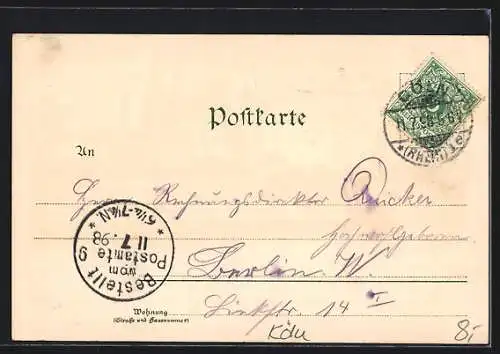 Postkarte
An
Herrn Rechnungsdirektor Quicker
Hochwohlgeboren
Berlin W.
Linkstr. 14 I
Wohnung
(Straße und Hausnummer)
Bestellt
vom
Postamte 9
11.7.98
* 6½-7½N *
(RHEIN)
Köln
8,-